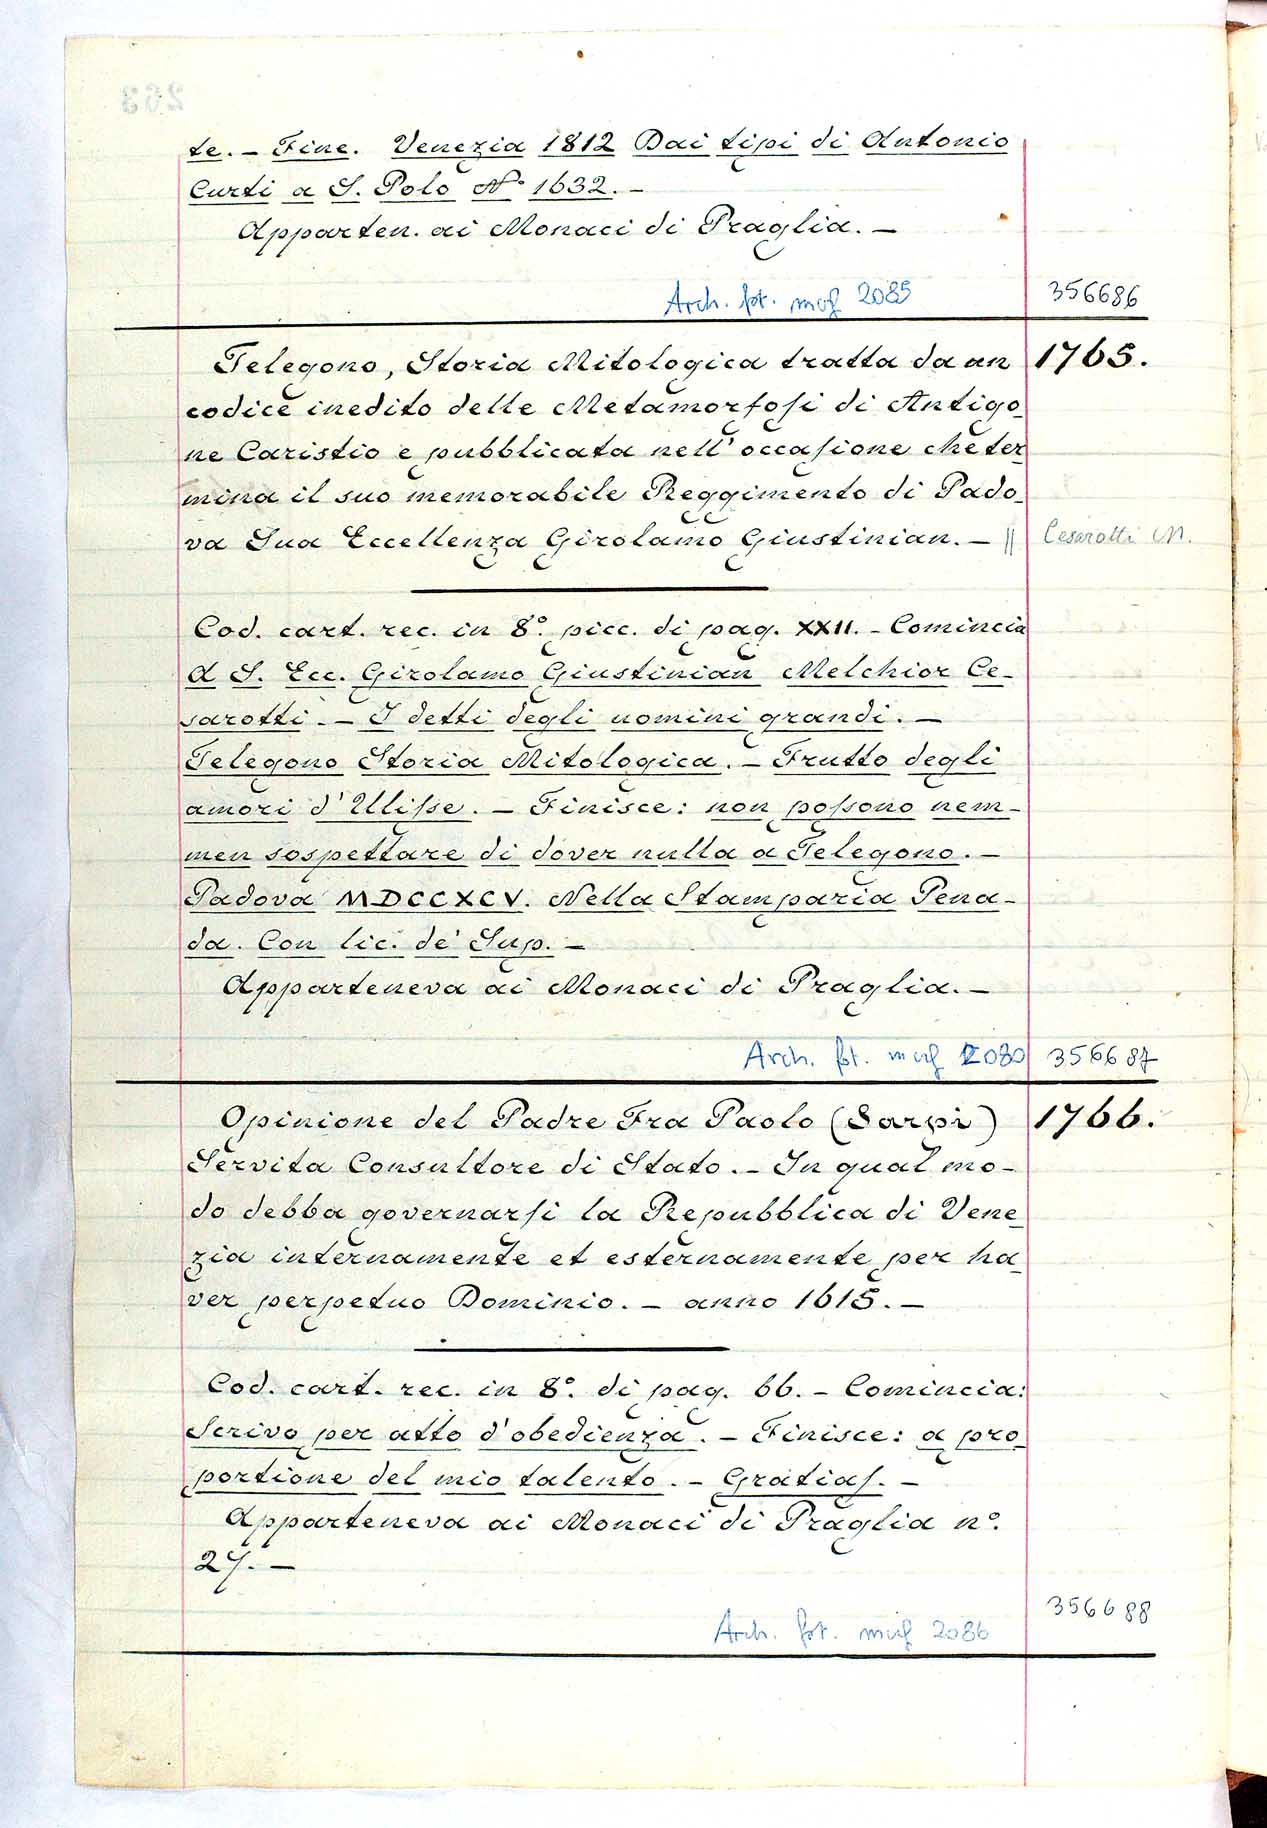 te. – Fine. Venezia 1812 Dai tipi di Antonio
Curti a S. Polo N.° 1632. –
Apparten. ai Monaci di Praglia. –
Arch. fot. mcf 2085 356686
Telegono, Storia Mitologica tratta da un 1765.
codice inedito delle Metamorfosi di Antigo_
ne Caristio e pubblicata nell'occasione che ter
mina il suo memorabile Reggimento di Pado_
va Sua Eccellenza Girolamo Giustinian. – || Cesarotti M.
Cod. cart. rec. in 8.° picc. di pag. XXII. – Comincia
A S. Ecc. Girolamo Giustinian Melchior Ce-
sarotti. – I detti degli uomini grandi. –
Telegono Storia Mitologica. – Frutto degli
amori d'Ulisse. – Finisce: non possono nem-
men sospettare di dover nulla a Telegono. –
Padova MDCCXCV. Nella Stamparia Pena-
da. Con lic. de' Sup. –
Apparteneva ai Monaci di Praglia. –
Arch. fot. mcf 2080 356687
Opinione del Padre Fra Paolo (Sarpi) 1766.
Servita Consultore di Stato. – In qual mo-
do debba governarsi la Repubblica di Vene_
zia internamente et esternamente per ha_
ver perpetuo Dominio. – anno 1615. –
Cod. cart. rec. in 8.° di pag. 66. – Comincia:
Scrivo per atto d'obedienza. – Finisce: a pro_
portione del mio talento. – Gratias. –
Apparteneva ai Monaci di Praglia n.°
27. –
356688
Arch. fot. mcf 2086